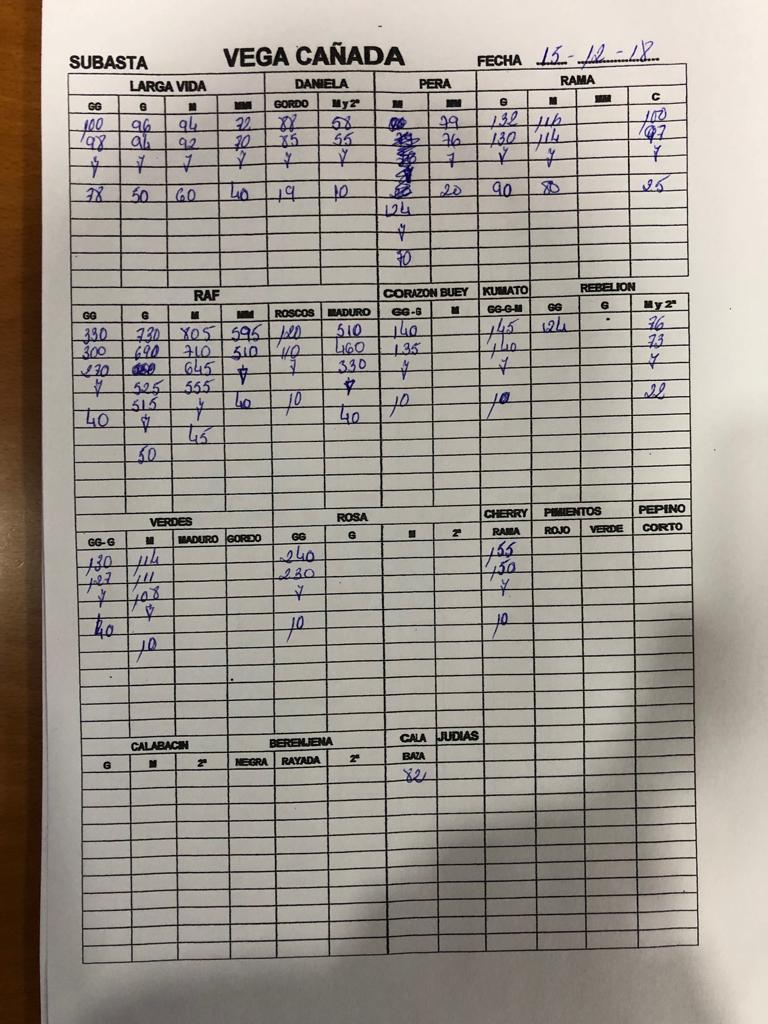 SUBASTA VEGA CAÑADA FECHA 15-12-18
LARGA VIDA DANIELA PERA RAMA
GG G M MM GORDO M y 2ª M MM G M MM C
100 96 94 72 88 58 79 132 116 100
98 94 92 70 85 55 76 130 114 97
78 50 60 40 19 10 20 90 80 25
124
70
RAF CORAZON BUEY KUMATO REBELION
GG G M MM ROSCOS MADURO GG-G M GG-G-M GG G M y 2ª
330 730 805 595 120 510 140 145 124 76
300 690 710 510 110 460 135 140 73
270 645 330
525 555 22
515 40 10 10 10
40 40
45
50
VERDES ROSA CHERRY PIMIENTOS PEPINO
GG-G M MADURO GORDO GG G M 2ª RAMA ROJO VERDE CORTO
130 114 240 155
127 111 230 150
108
40 10 10
10
CALABACIN BERENJENA CALA JUDIAS
G M 2ª NEGRA RAYADA 2ª BAZA
82